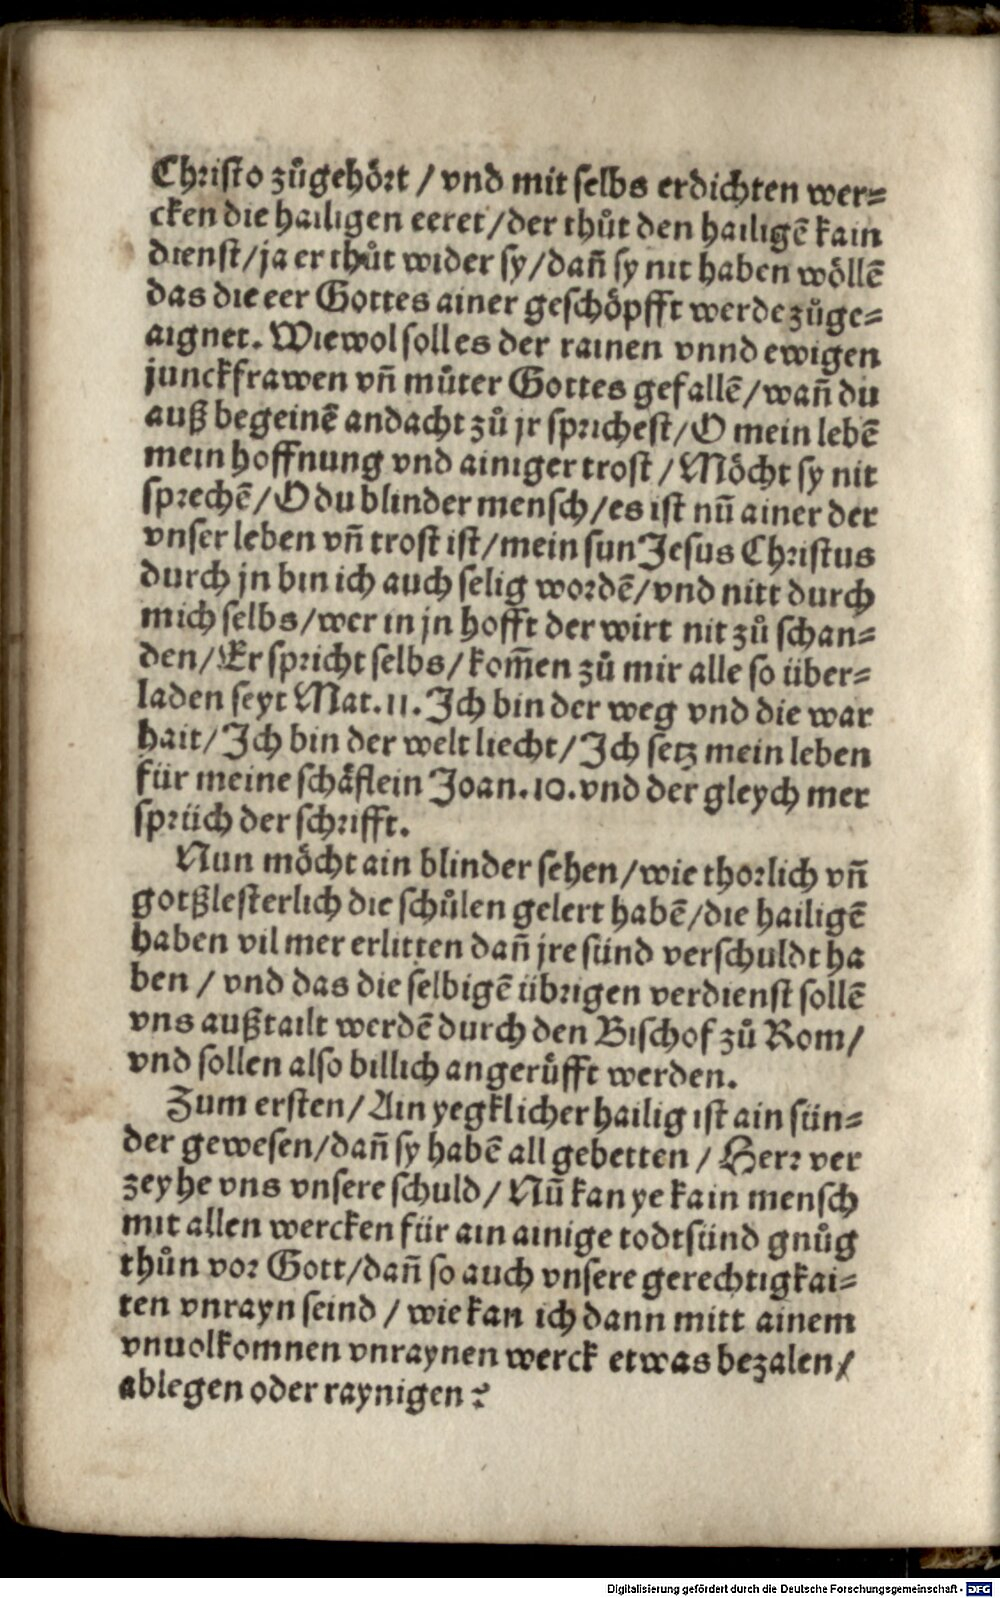 Christo zůgehört / vnd mit selbs erdichten wer⸗
cken die hailigen eeret / der thůt den hailigẽ kain
dienst / ja er thůt wider sy / dañ sy nit haben wöllẽ
das die eer Gottes ainer geschöpfft werde zůge⸗
aignet. Wiewol soll es der rainen vnnd ewigen
junckfrawen vñ můter Gottes gefallẽ / wañ du
auß begeinẽ andacht zů jr sprichest / O mein lebẽ
mein hoffnung vnd ainiger trost / Möcht sy nit
sprechẽ / O du blinder mensch / es ist nũ ainer der
vnser leben vñ trost ist / mein sun Jesus Christus
durch jn bin ich auch selig wordẽ / vnd nitt durch
mich selbs / wer in jn hofft der wirt nit zů schan⸗
den / Er spricht selbs / kom̃en zů mir alle so über⸗
laden seyt Mat. 11. Ich bin der weg vnd die war
hait / Ich bin der welt liecht / Ich setz mein leben
für meine schäflein Joan. 10. vnd der gleych mer
sprüch der schrifft.
Nun möcht ain blinder sehen / wie thorlich vñ
gotßlesterlich die schůlen gelert habẽ / die hailigẽ
haben vil mer erlitten dañ jre sünd verschuldt ha
ben / vnd das die selbigẽ übrigen verdienst sollẽ
vns außtailt werdẽ durch den Bischof zů Rom /
vnd sollen also billich angerůfft werden.
Zum ersten / Ain yegklicher hailig ist ain sün⸗
der gewesen / dañ sy habẽ all gebetten / Herr ver
zeyhe vns vnsere schuld / Nũ kan ye kain mensch
mit allen wercken für ain ainige todtsünd gnůg
thůn vor Gott / dañ so auch vnsere gerechtigkai⸗
ten vnrayn seind / wie kan ich dann mitt ainem
vnuolkomnen vnraynen werck etwas bezalen /
ablegen oder raynigen?
Digitalisierung gefördert durch die Deutsche Forschungsgemeinschaft - DFG